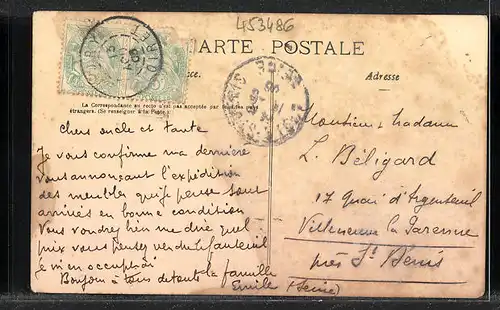 453486
CARTE POSTALE
La Correspondance au recto n'est pas acceptée par tous les pays
étrangers. (Se renseigner à la Poste.)
Adresse
LOIRET
Chers oncle et tante
Je vous confirme ma dernière
vous annonçant l'expédition
des meubles qu'je pense sont
arrivés en bonne condition
Vous voudrez bien me dire quel
prix vous pensez vendre le fauteuil
je m'en occuperai
Bonjour à tous de toute la famille
Emile
Monsieur & Madame
L. Béligard
17 Quai d'Argenteuil
Villeneuve la Garenne
près St Denis
(Seine)